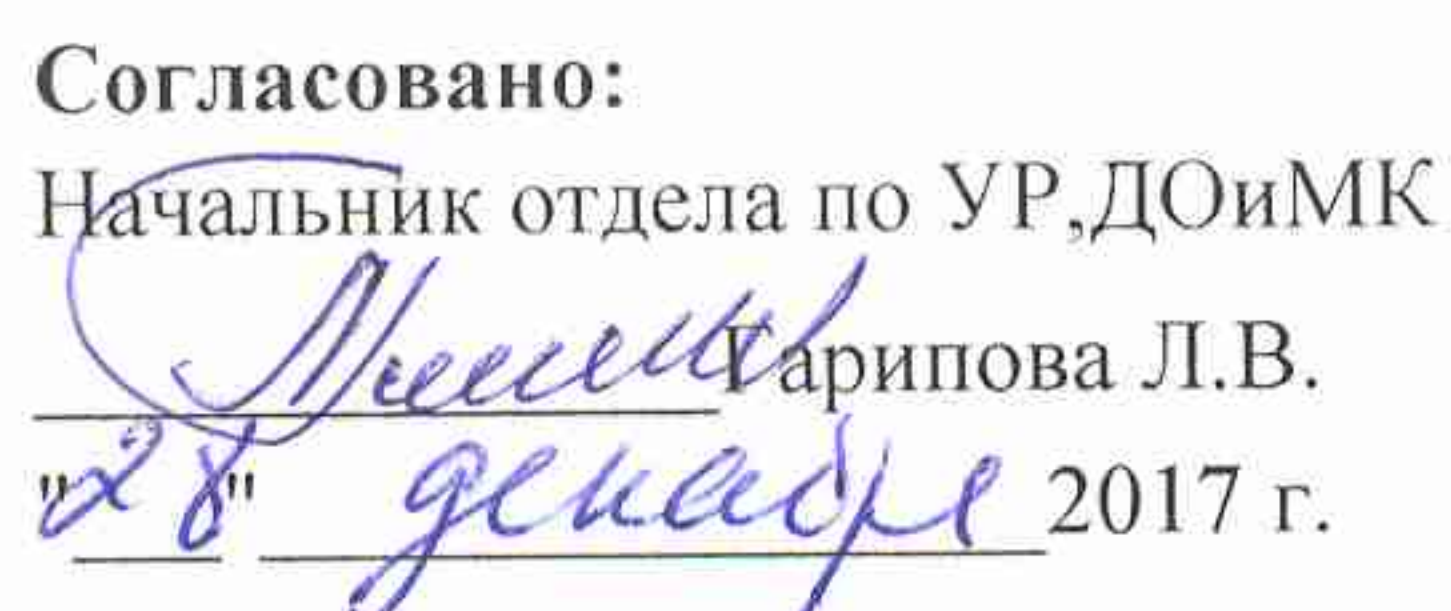 Согласовано:
Начальник отдела по УР,ДОиМК
Гарипова Л.В.
"28" декабря 2017 г.